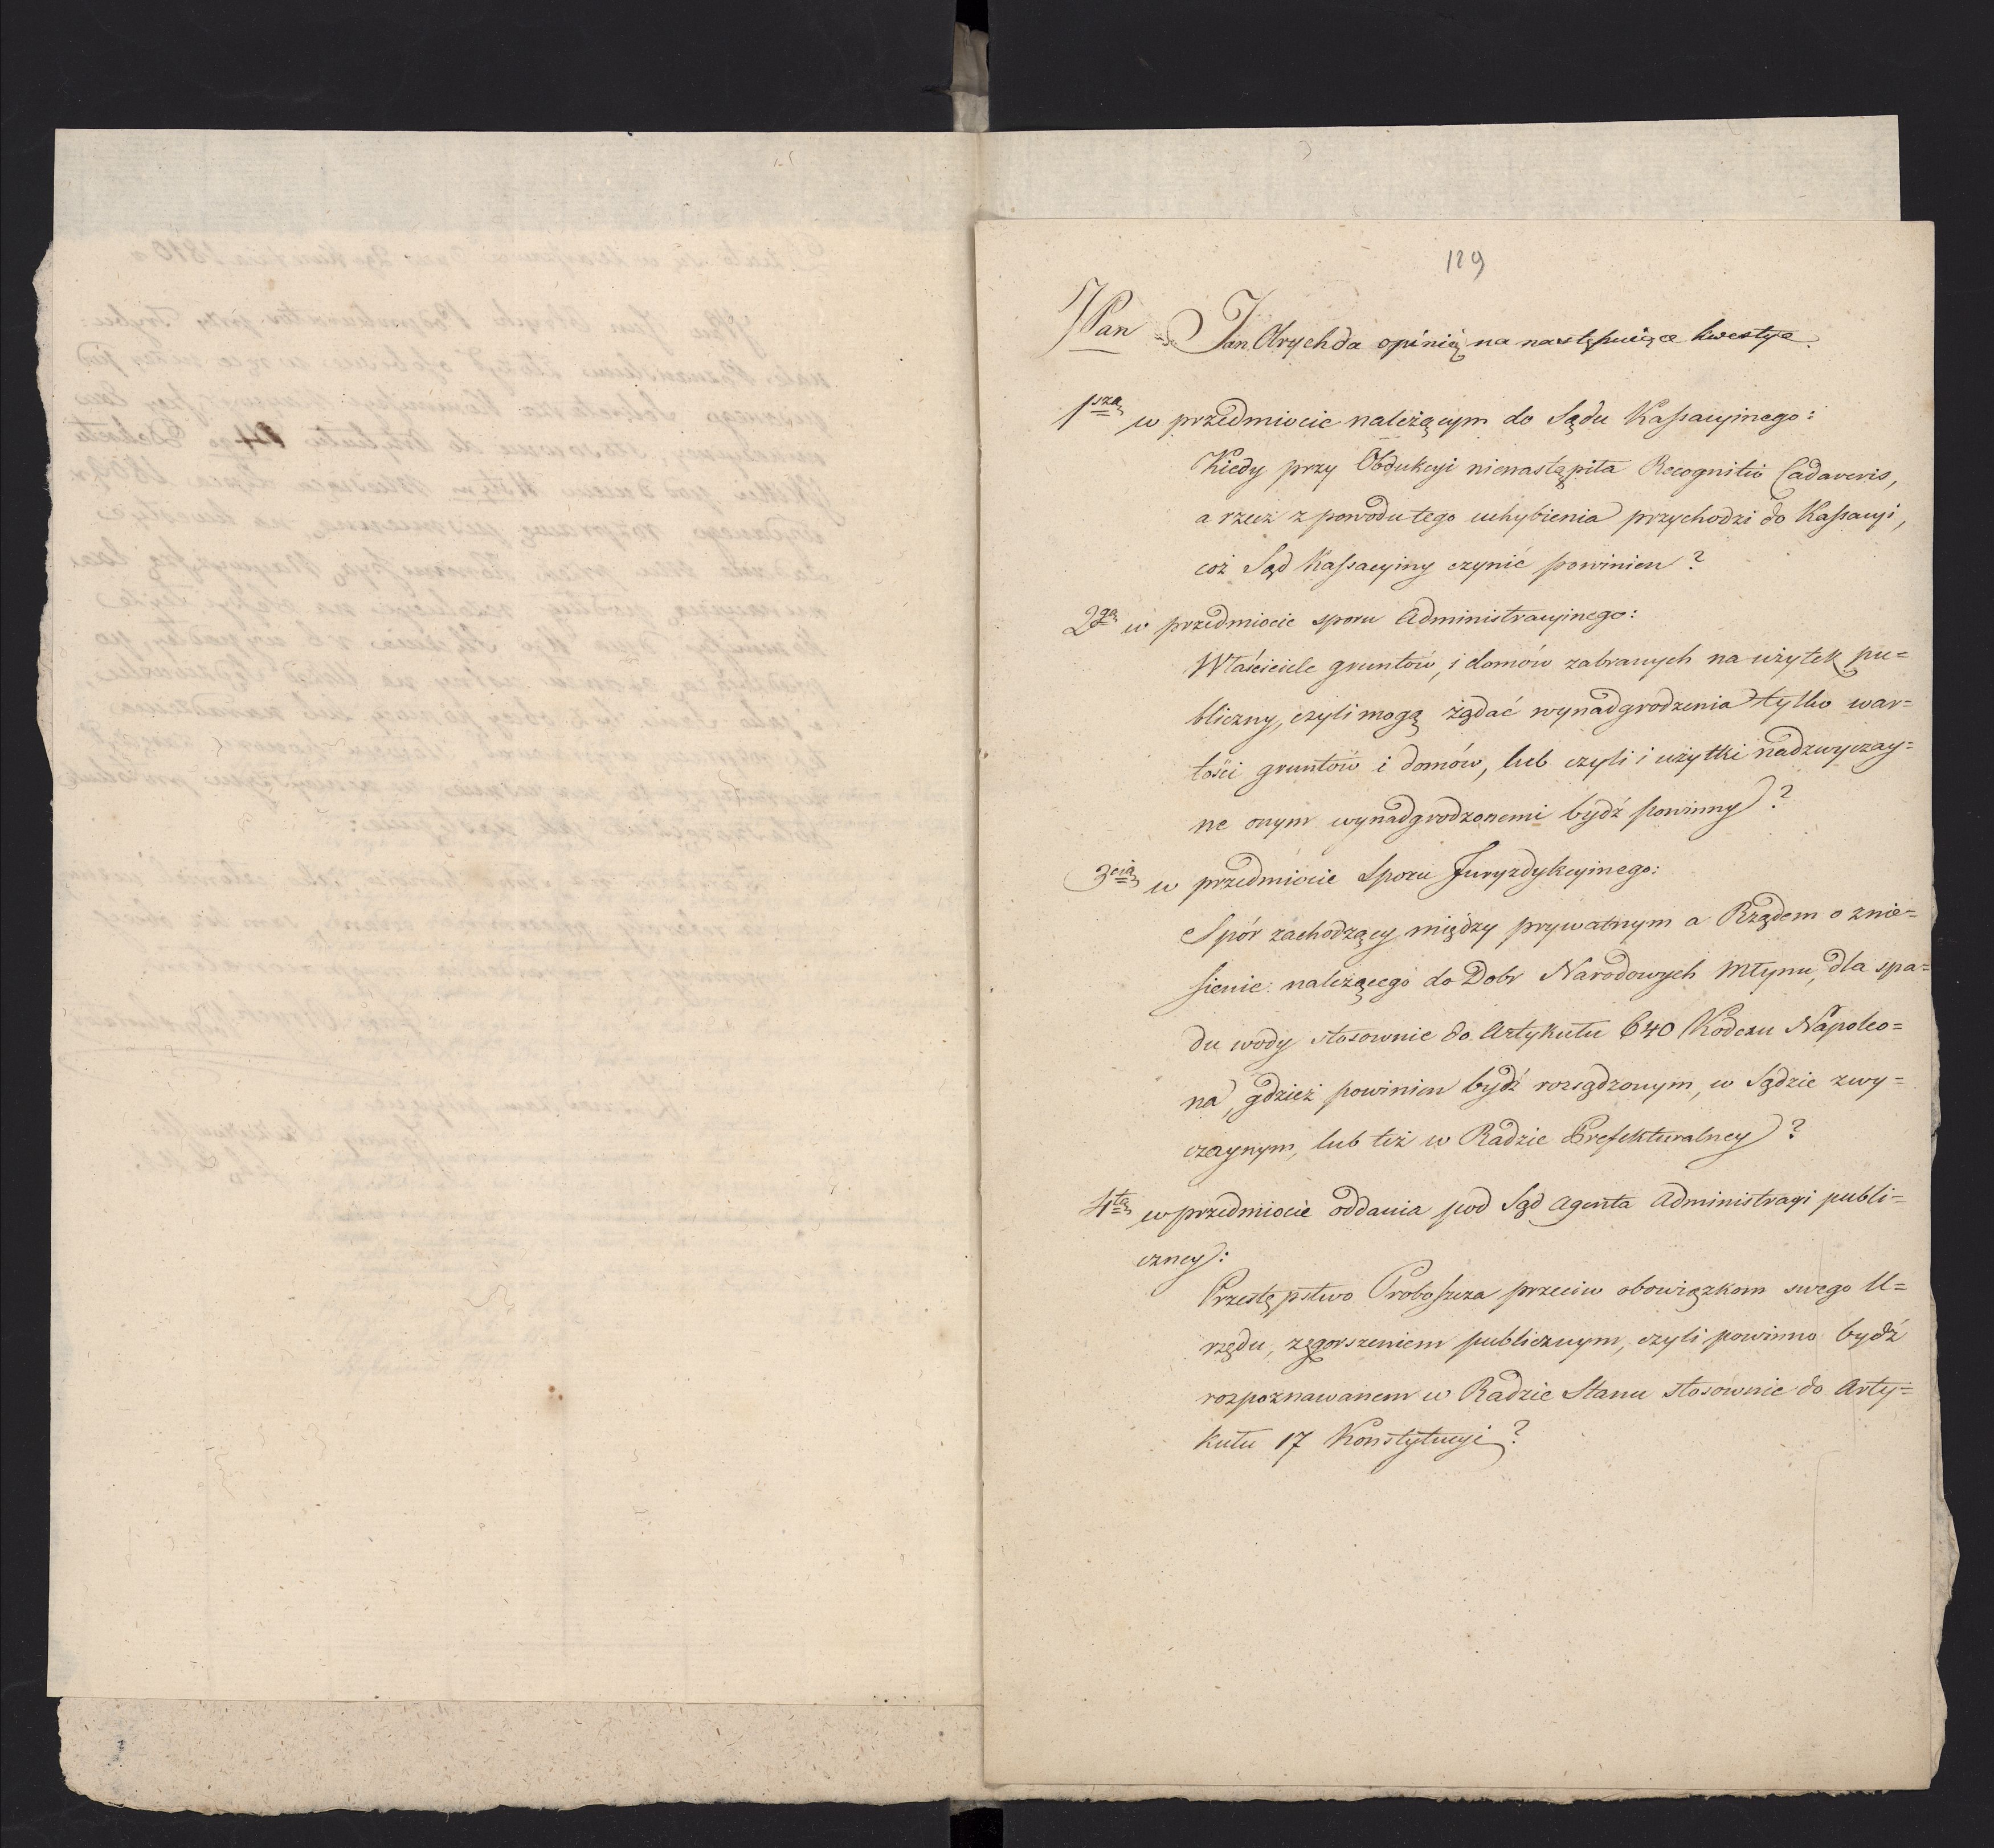 129
JPan Jan Olrych da opinią na następuiące kwestye.
1szą w przedmiocie należącym do Sądu Kassacyinego:
Kiedy przy Obdukcyi nienastąpiła Recognitio Cadaveris,
a rzecz z powodu tego uchybienia przychodzi do Kassacyi,
coż Sąd Kassacyiny czynić powinien?
2gą w przedmiocie sporu Administracyinego:
Właściciele gruntów, i domów zabranych na użytek pu=
bliczny, czyli mogą żądać wynadgrodzenia tylko war=
tości gruntów i domów, lub czyli i użytki nadzwyczay=
ne onym wynadgrodzonemi bydź powinny?
3cią w przedmiocie Sporu Juryzdykcyinego:
Spór zachodzący między prywatnym a Rządem o znie=
sienie należącego do Dobr Narodowych Młynu, dla spa=
du wody stosownie do Artykułu 640 Kodexu Napoleo=
na, gdzież powinien bydź rozsądzonym, w Sądzie zwy=
czaynym, lub też w Radzie Prefekturalney?
4tą w przedmiocie oddania pod Sąd Agenta Administracyi publi=
czney:
Przestępstwo Proboszcza przeciw obowiązkom swego U=
rzędu, zgorszeniem publicznym, czyli powinno bydź
rozpoznawanem w Radzie Stanu stosownie do Arty=
kułu 17 Konstytucyi?